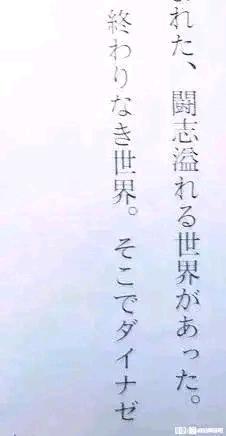 れた、闘志溢れる世界があった。
終わりなき世界。そこでダイナゼ